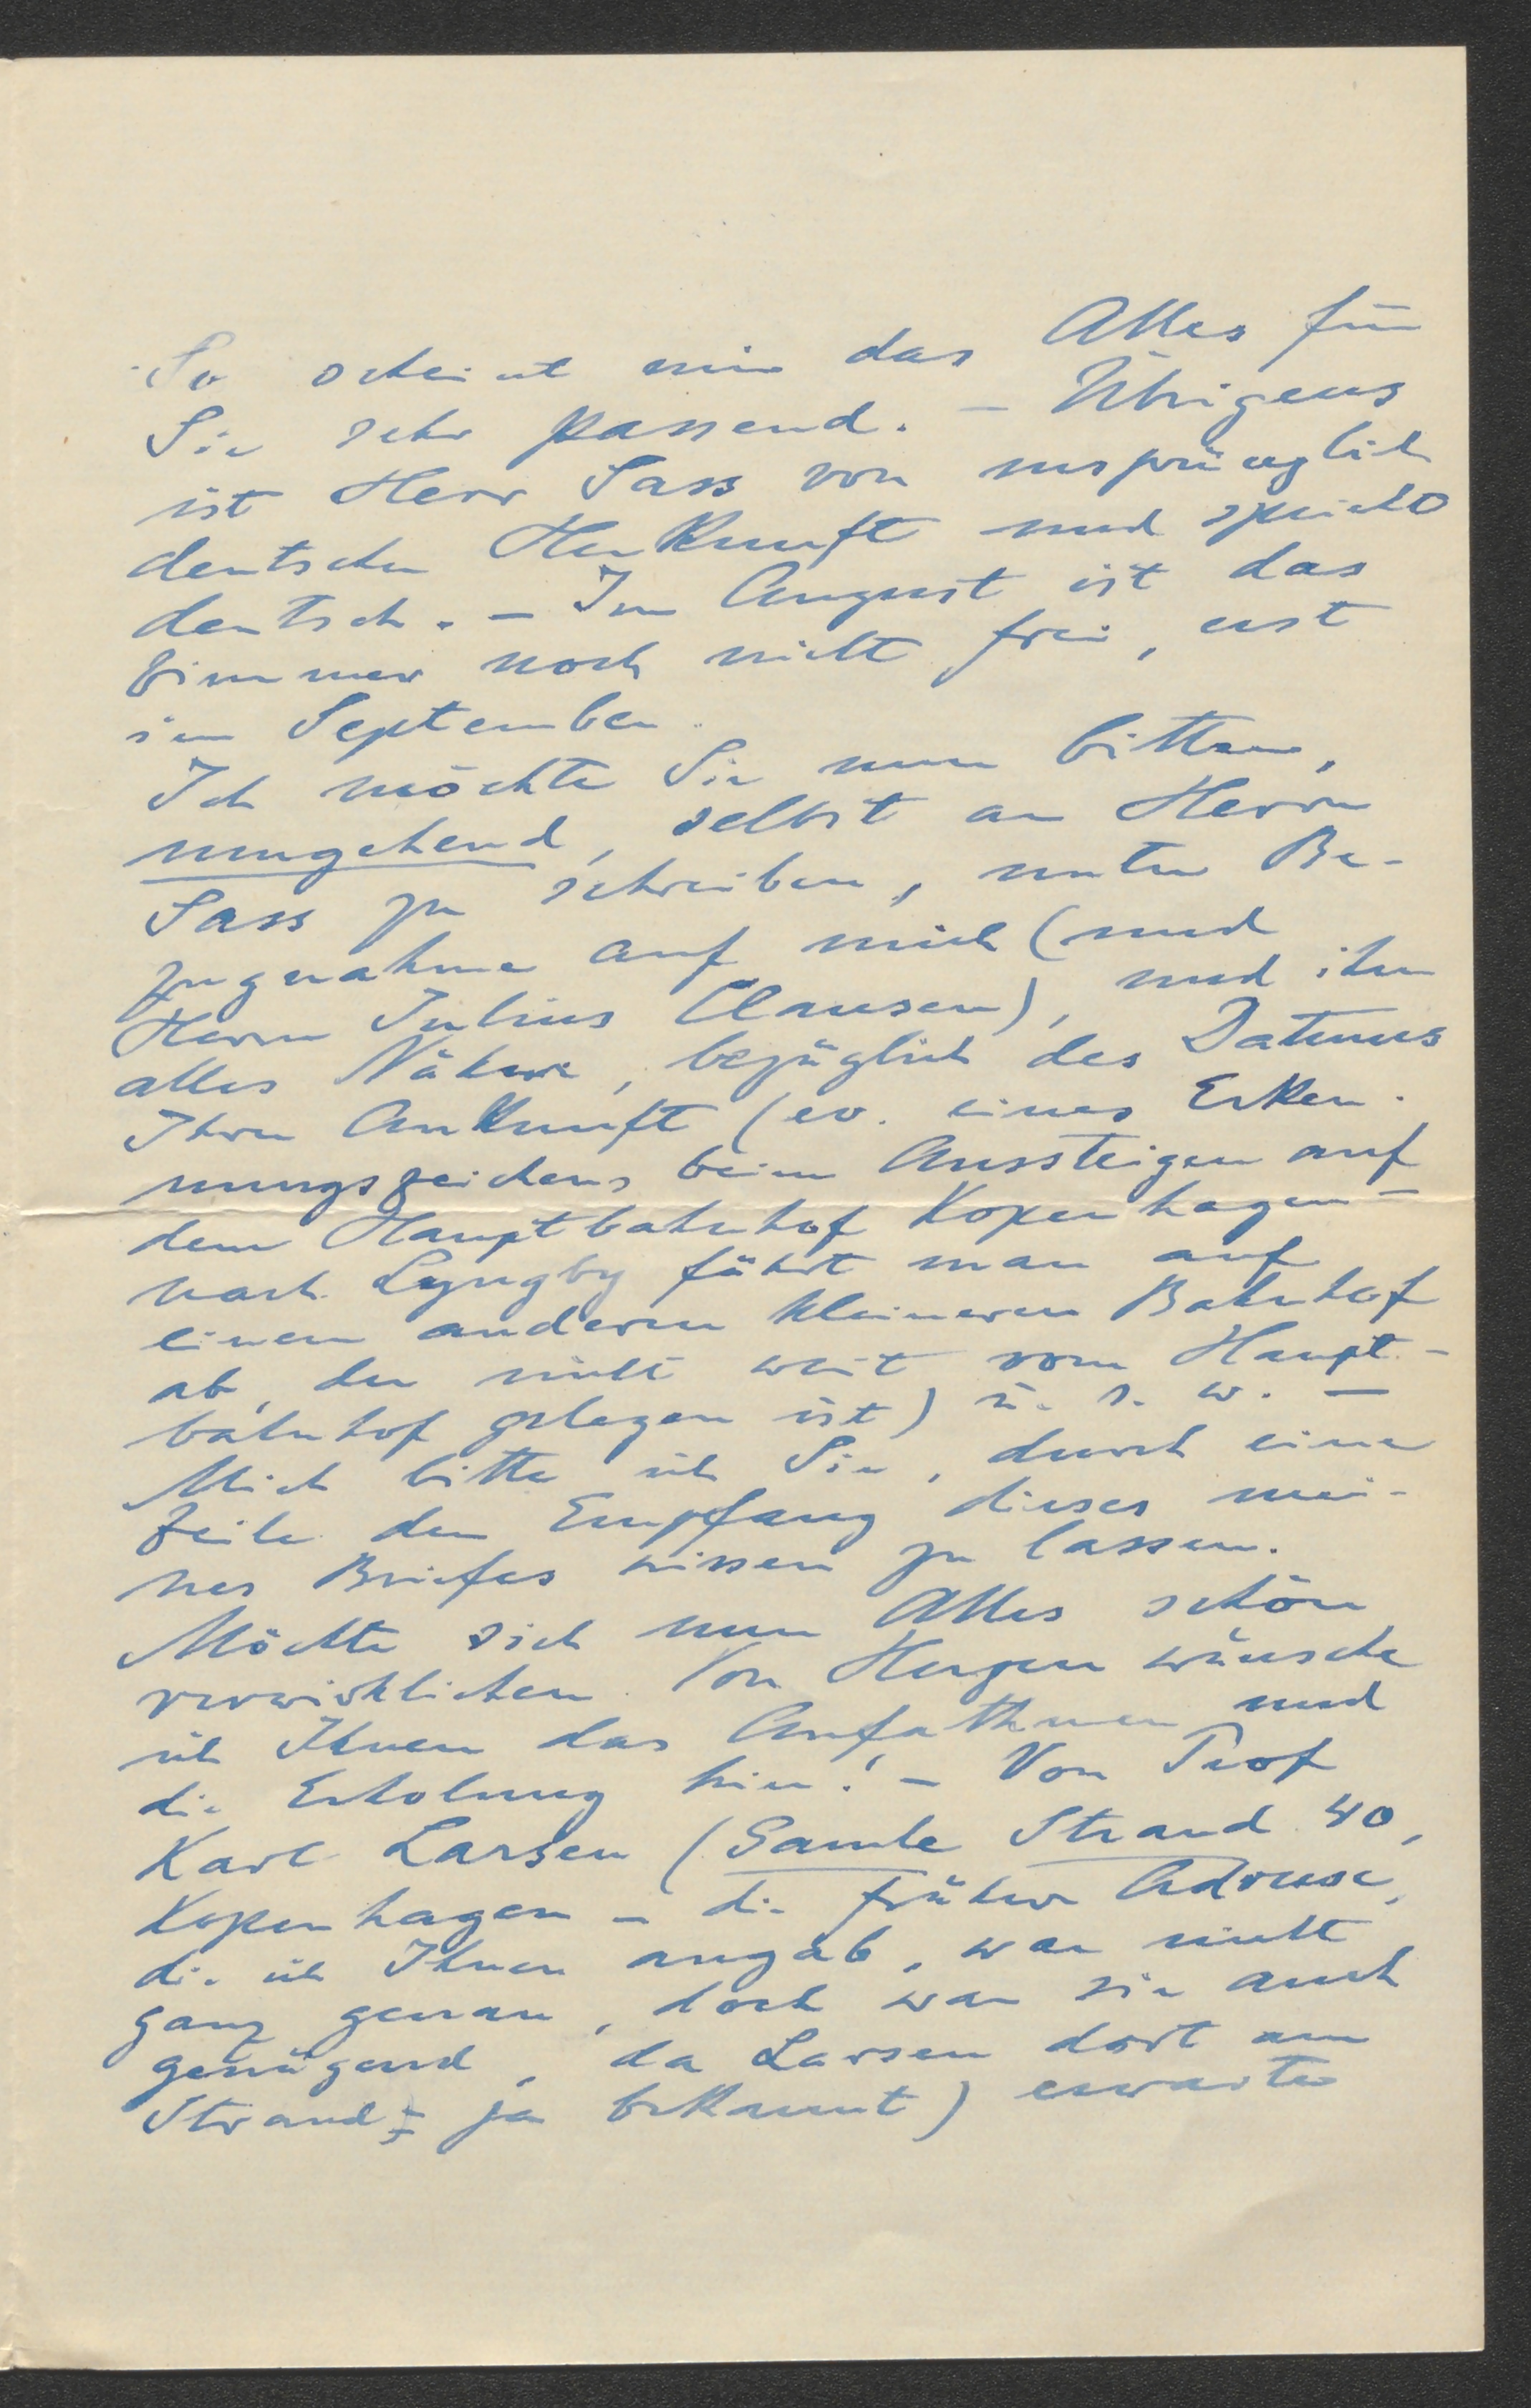 So scheint mir das Alles für
Sie sehr passend. – Übrigens
ist Herr Sass von ursprünglich
deutscher Herkunft und spricht
deutsch. – Im August ist das
Zimmer noch nicht frei, erst
im September.
Ich möchte Sie nun bitten,
umgehend, selbst an Herrn
Sass zu schreiben, unter Be-
zugnahme auf mich (und
Herrn Julius Clausen), und ihm
alles Nähere, bezüglich des Datums
Ihrer Ankunft (ev. eines Erken-
nungszeichens beim Aussteigen auf
dem Hauptbahnhof Kopenhagen –
nach Lyngby fährt man auf
einen anderen kleineren Bahnhof
ab, der nicht weit vom Haupt-
bahnhof gelegen ist) u. s. w. –
Mich bitte ich Sie, durch eine
Zeile den Empfang dieses mei-
nes Briefes wissen zu lassen.
Möchte sich nun Alles schön
verwirklichen. Von Herzen wünsche
ich Ihnen das Aufathmen und
die Erholung hier! – Von Prof
Karl Larsen (Gamle Strand 40,
Kopenhagen – die frühere Adresse,
die ich Ihnen angab, war nicht
ganz genau, doch war sie auch
genügend, da Larsen dort am
Strand ja bekannt) erwarte